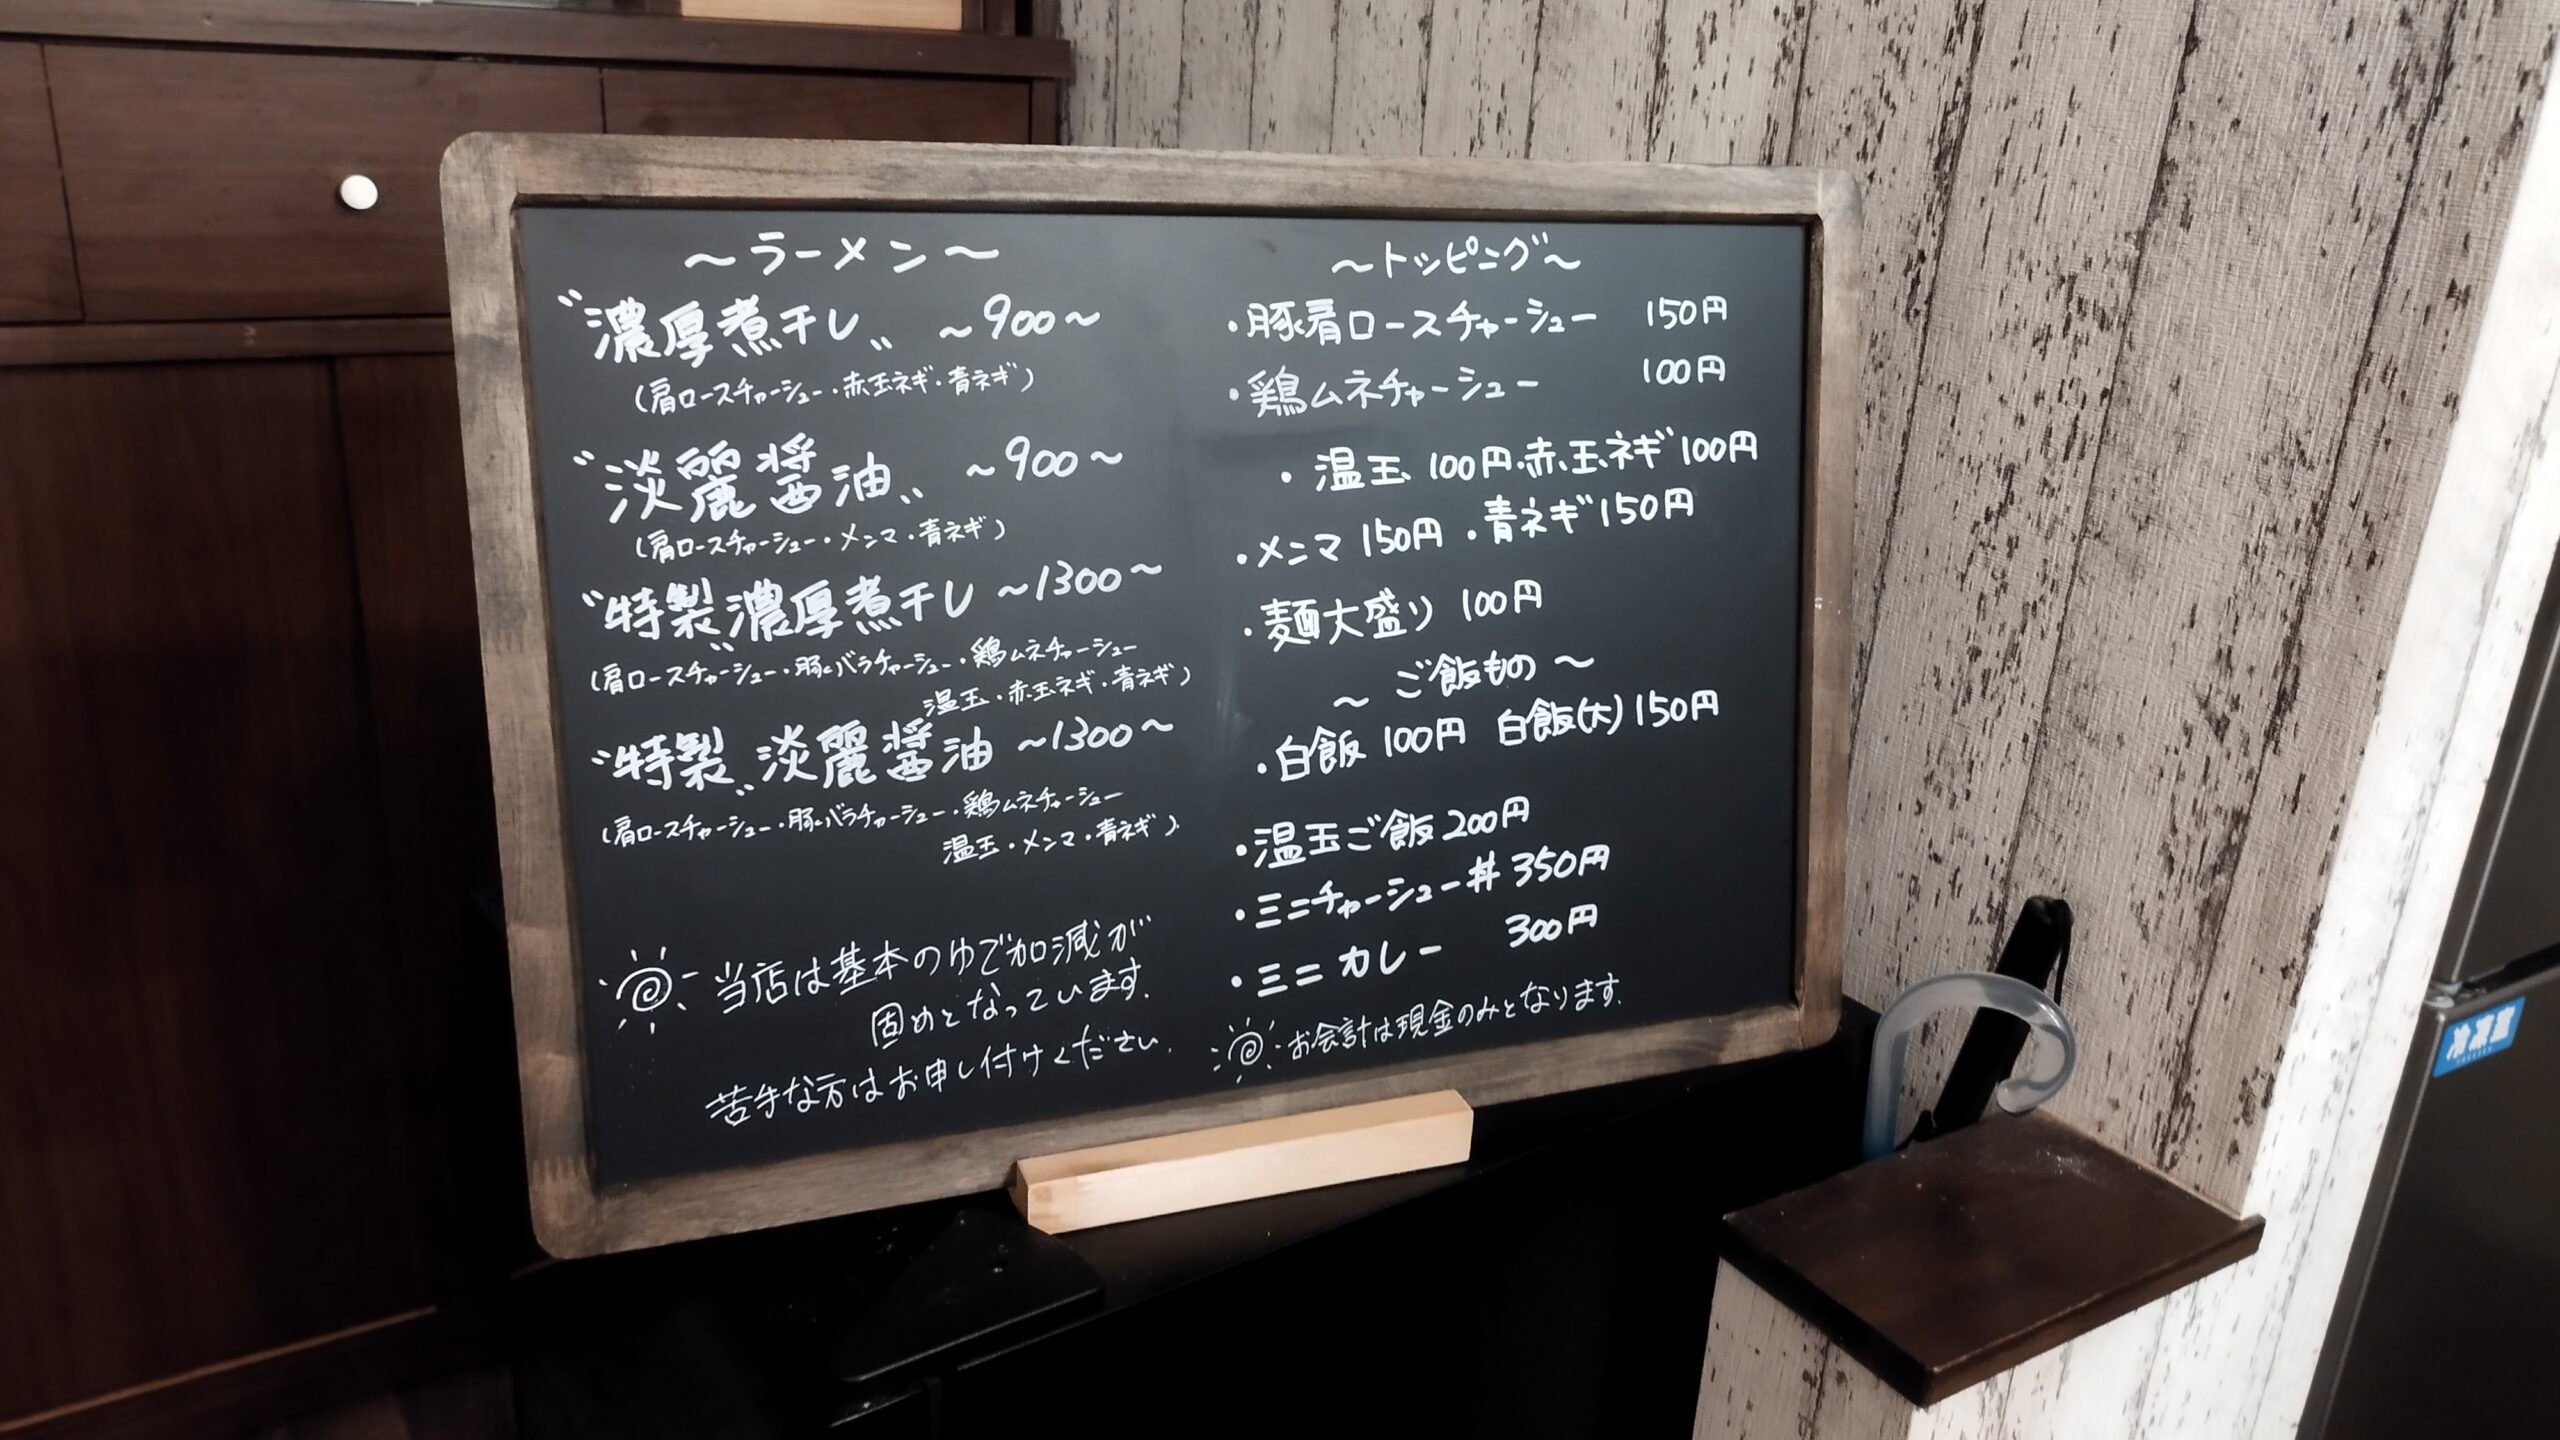 ～ラーメン～
〝濃厚煮干し〟 ～900～
(肩ロースチャーシュー・赤玉ネギ・青ネギ)
〝淡麗醤油〟 ～900～
(肩ロースチャーシュー・メンマ・青ネギ)
〝特製〟濃厚煮干し ～1300～
(肩ロースチャーシュー・豚バラチャーシュー・鶏ムネチャーシュー
温玉・赤玉ネギ・青ネギ)
〝特製〟淡麗醤油 ～1300～
(肩ロースチャーシュー・豚バラチャーシュー・鶏ムネチャーシュー
温玉・メンマ・青ネギ)
当店は基本のゆで加減が
固めとなっています.
苦手な方はお申し付けください.
～トッピング～
・豚肩ロースチャーシュー 150円
・鶏ムネチャーシュー 100円
・温玉 100円・赤玉ネギ 100円
・メンマ 150円 ・青ネギ 150円
・麺大盛り 100円
～ご飯もの～
・白飯 100円 白飯(大) 150円
・温玉ご飯 200円
・ミニチャーシュー丼 350円
・ミニカレー 300円
お会計は現金のみとなります.
冷凍室
FREEZER